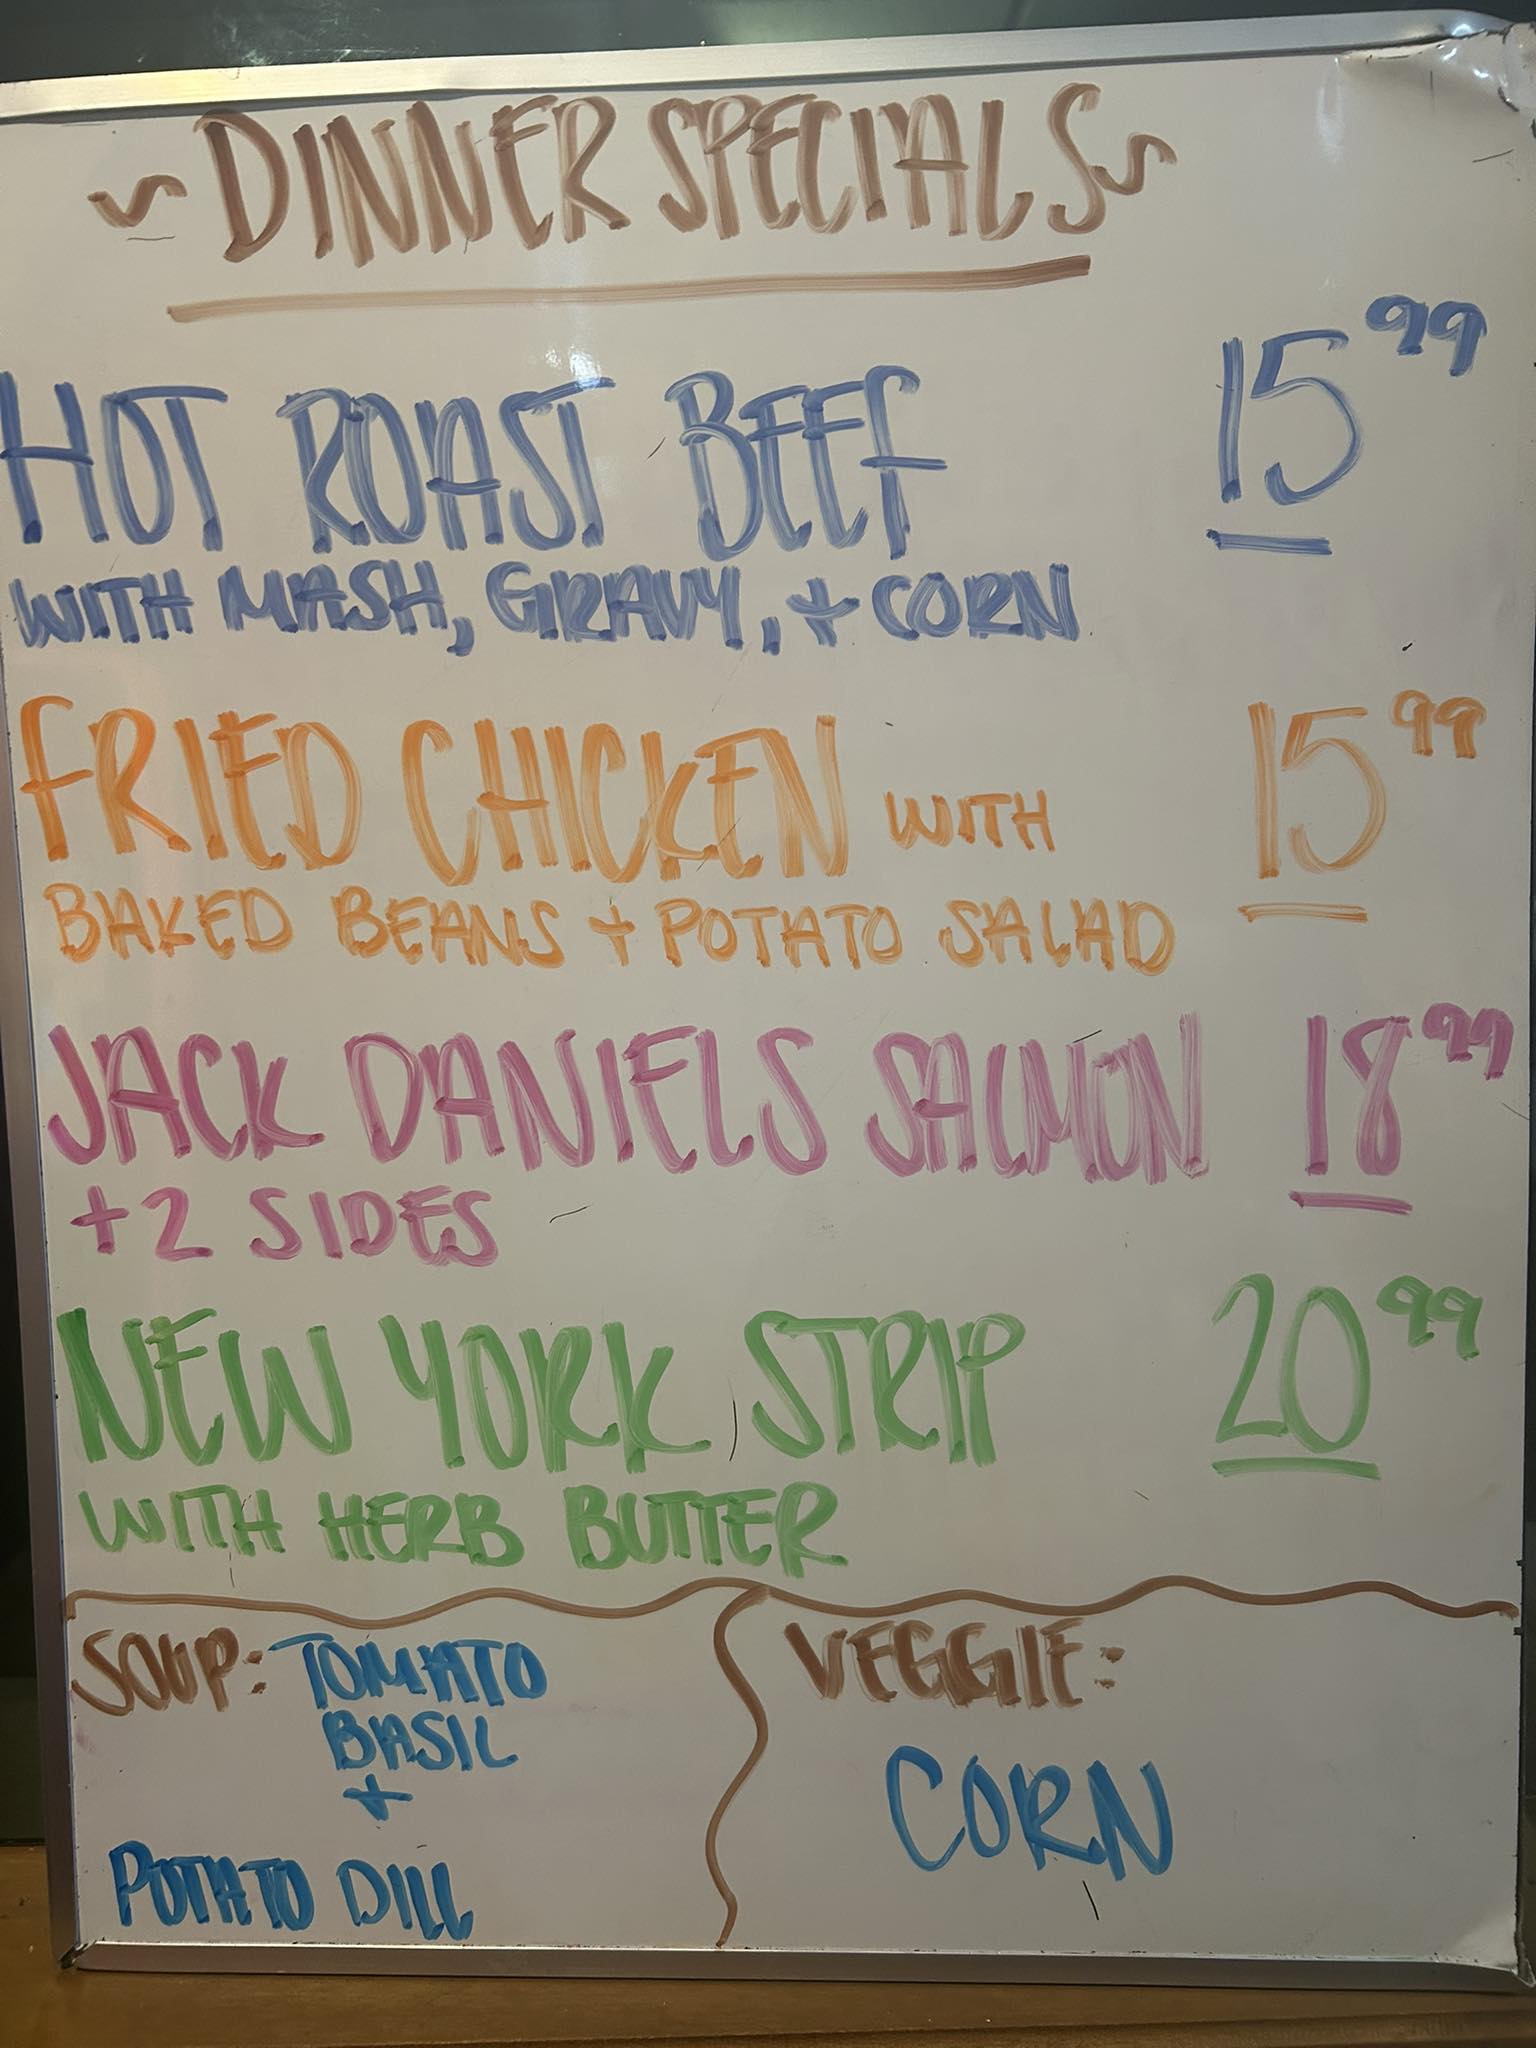 ~ DINNER SPECIALS ~
HOT ROAST BEEF 15.99
WITH MASH, GRAVY, + CORN
FRIED CHICKEN WITH 15.99
BAKED BEANS + POTATO SALAD
JACK DANIELS SALMON 18.99
+ 2 SIDES
NEW YORK STRIP 20.99
WITH HERB BUTTER
SOUP: TOMATO
BASIL
+
POTATO DILL
VEGGIE:
CORN